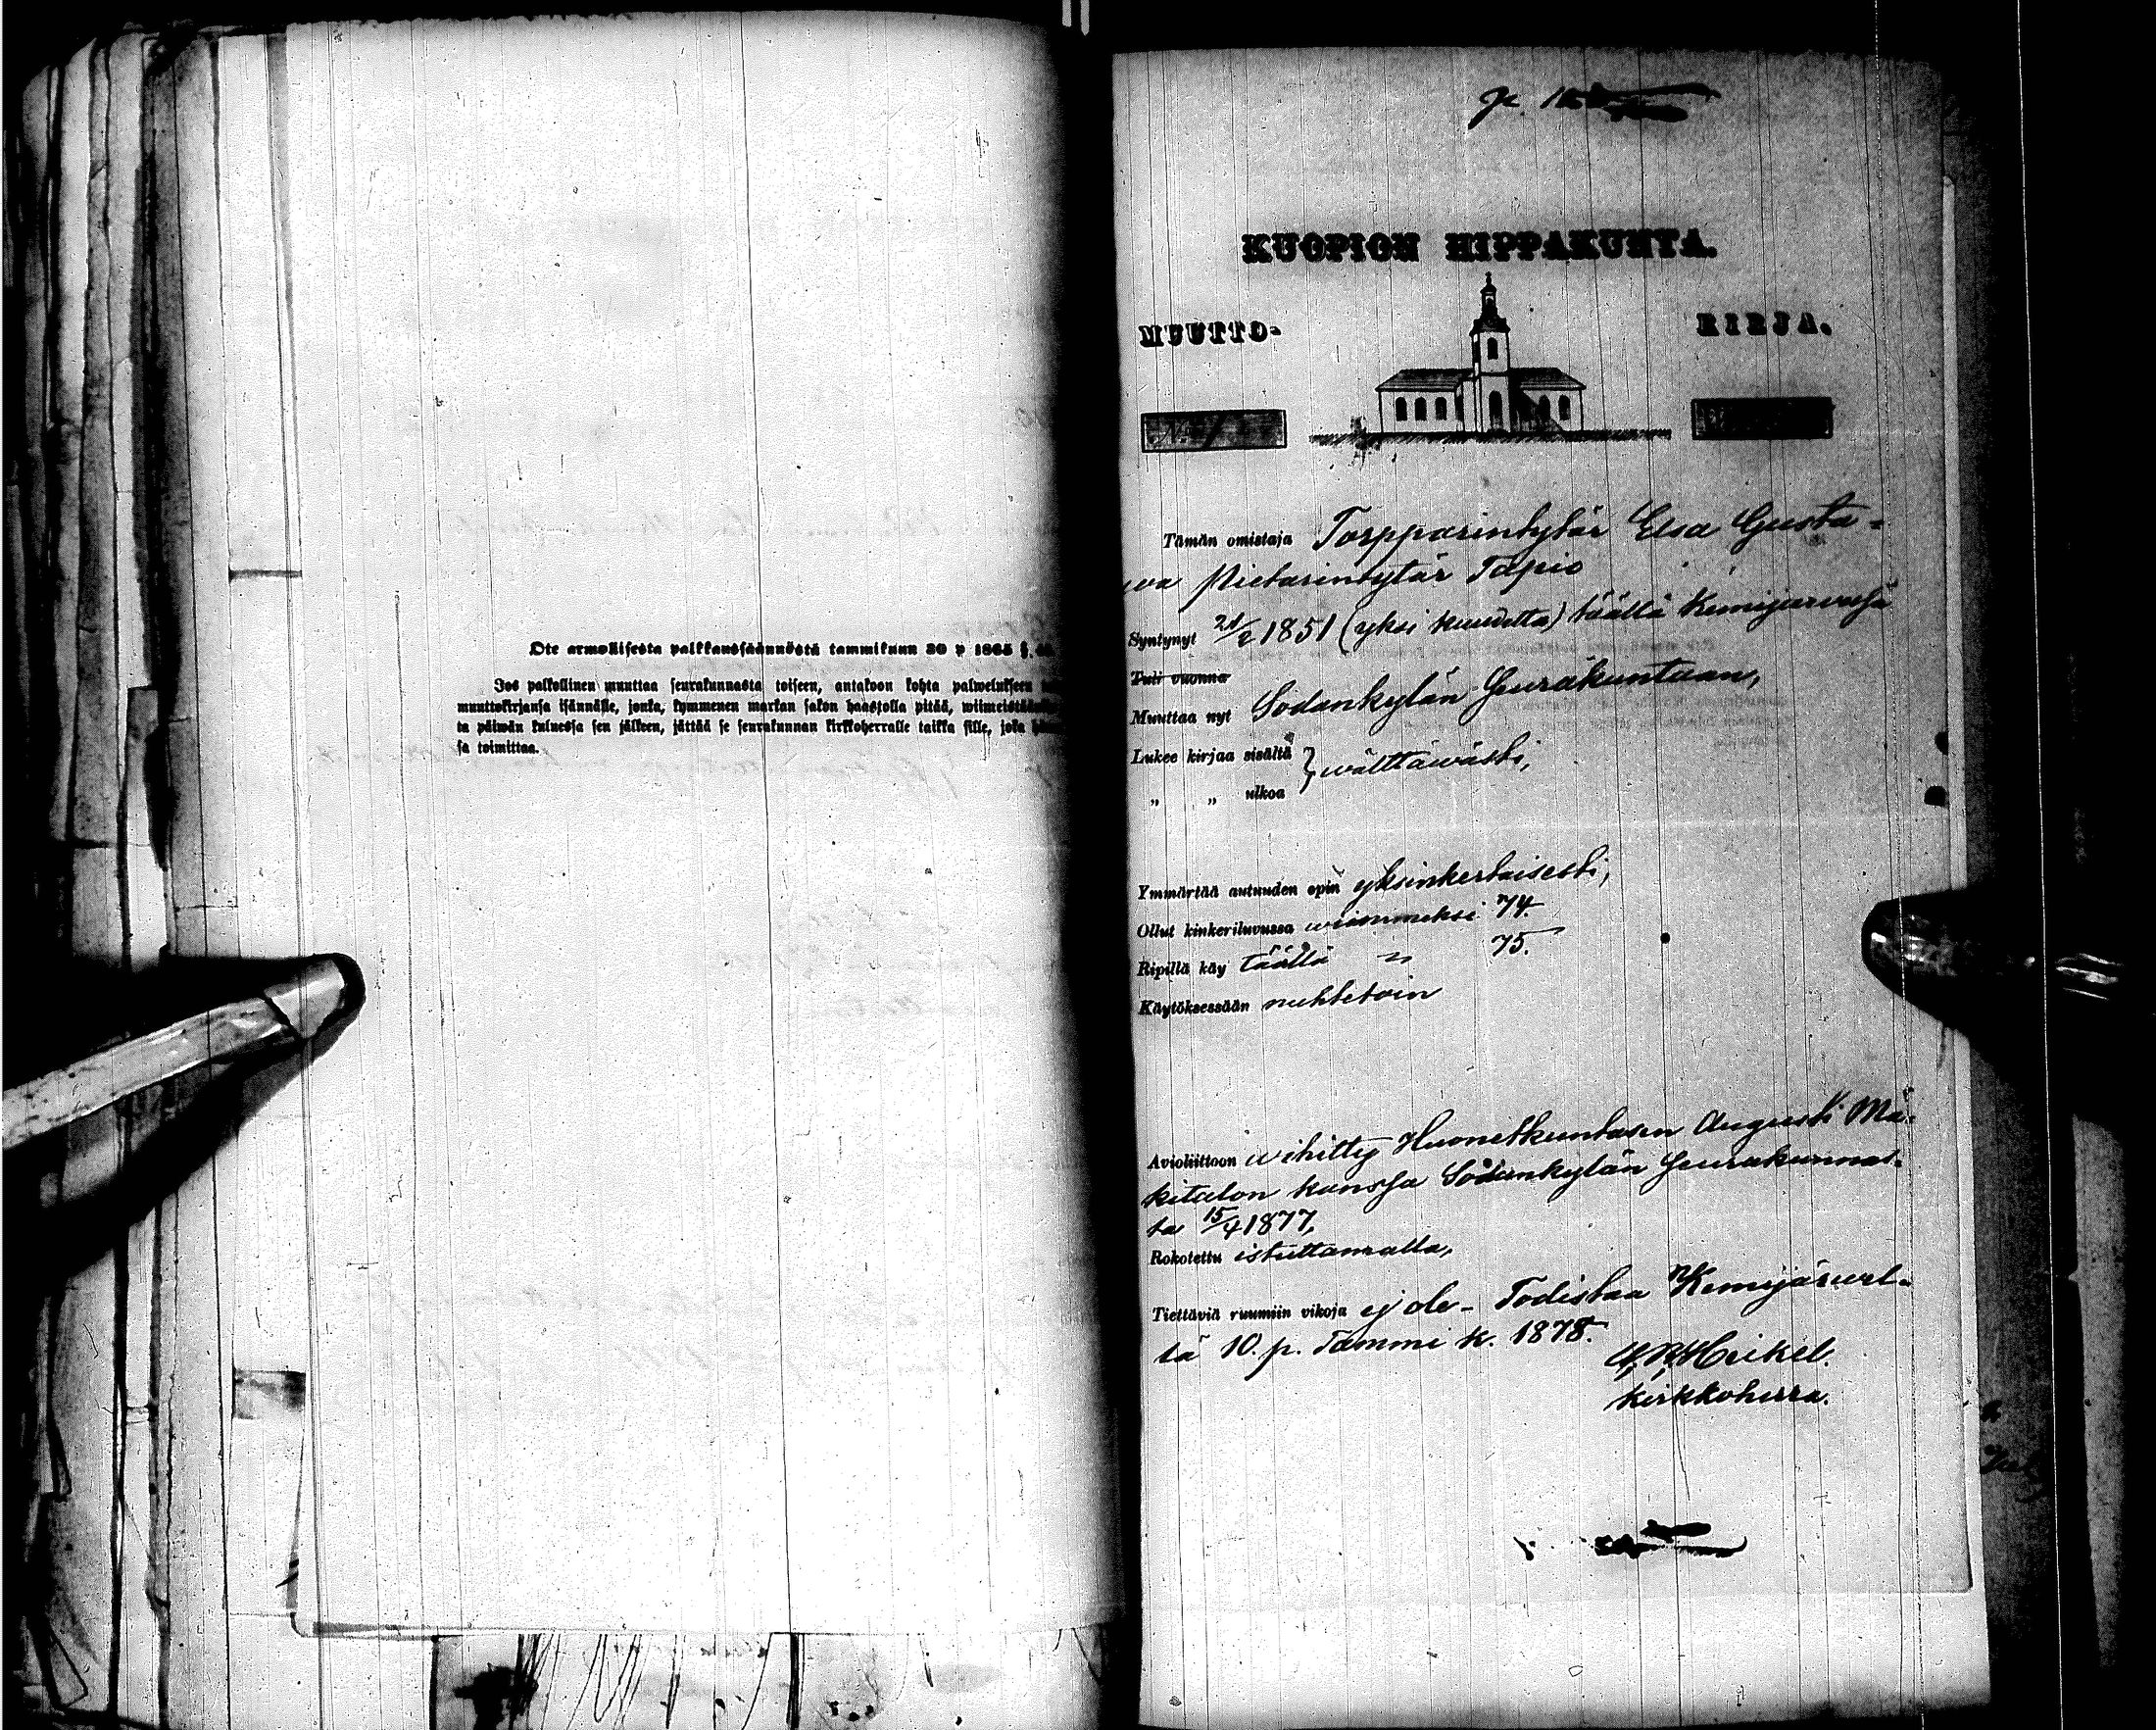 Ote armollisesta palkkaussäännöstä tammikuun 30 p 1865 §.
Jos palkollinen muuttaa seurakunnasta toiseen, antakoon kohta palwelukseen
muuttokirjansa isännälle, jonka, kymmenen markan sakon haastolla pitää, wiimeistään
ta päiwän kuluessa sen jälkeen, jättää se seurakunnan kirkkoherralle taikka sille, joka
sa toimittaa.
KUOPION HIPPAKUNTA.
MUUTTO- KIRJA.
No 1
Tämän omistaja Torpparintytär Elsa Gusta-
va Pietarintytär Tapio
Syntynyt 21/2 1851 (yksi kuudetta) täällä Kemijärvesjä
Tuli vuonna
Muuttaa nyt Sodankylän Seurakuntaan,
Lukee kirjaa sisältä } wälttäwästi,
„ „ ulkoa
Ymmärtää autuuden opin yksinkertaisesti,
Ollut kinkeriluvussa wiimmeksi 74.
Ripillä käy täällä " 75.
Käytöksessään nuhtetoin
Avioliittoon wihitty Huonetkuntasen Augusti Mä-
kitalon kanssa Sodankylän Seurakunnas-
ta 15/4 1877,
Rokotettu istuttamalla,
Tiettäviä ruumiin vikoja ej ole- Todistaa Kemijärvel-
tä 10. p. Tammi k. 1878.
Heikel.
kirkkoherra.